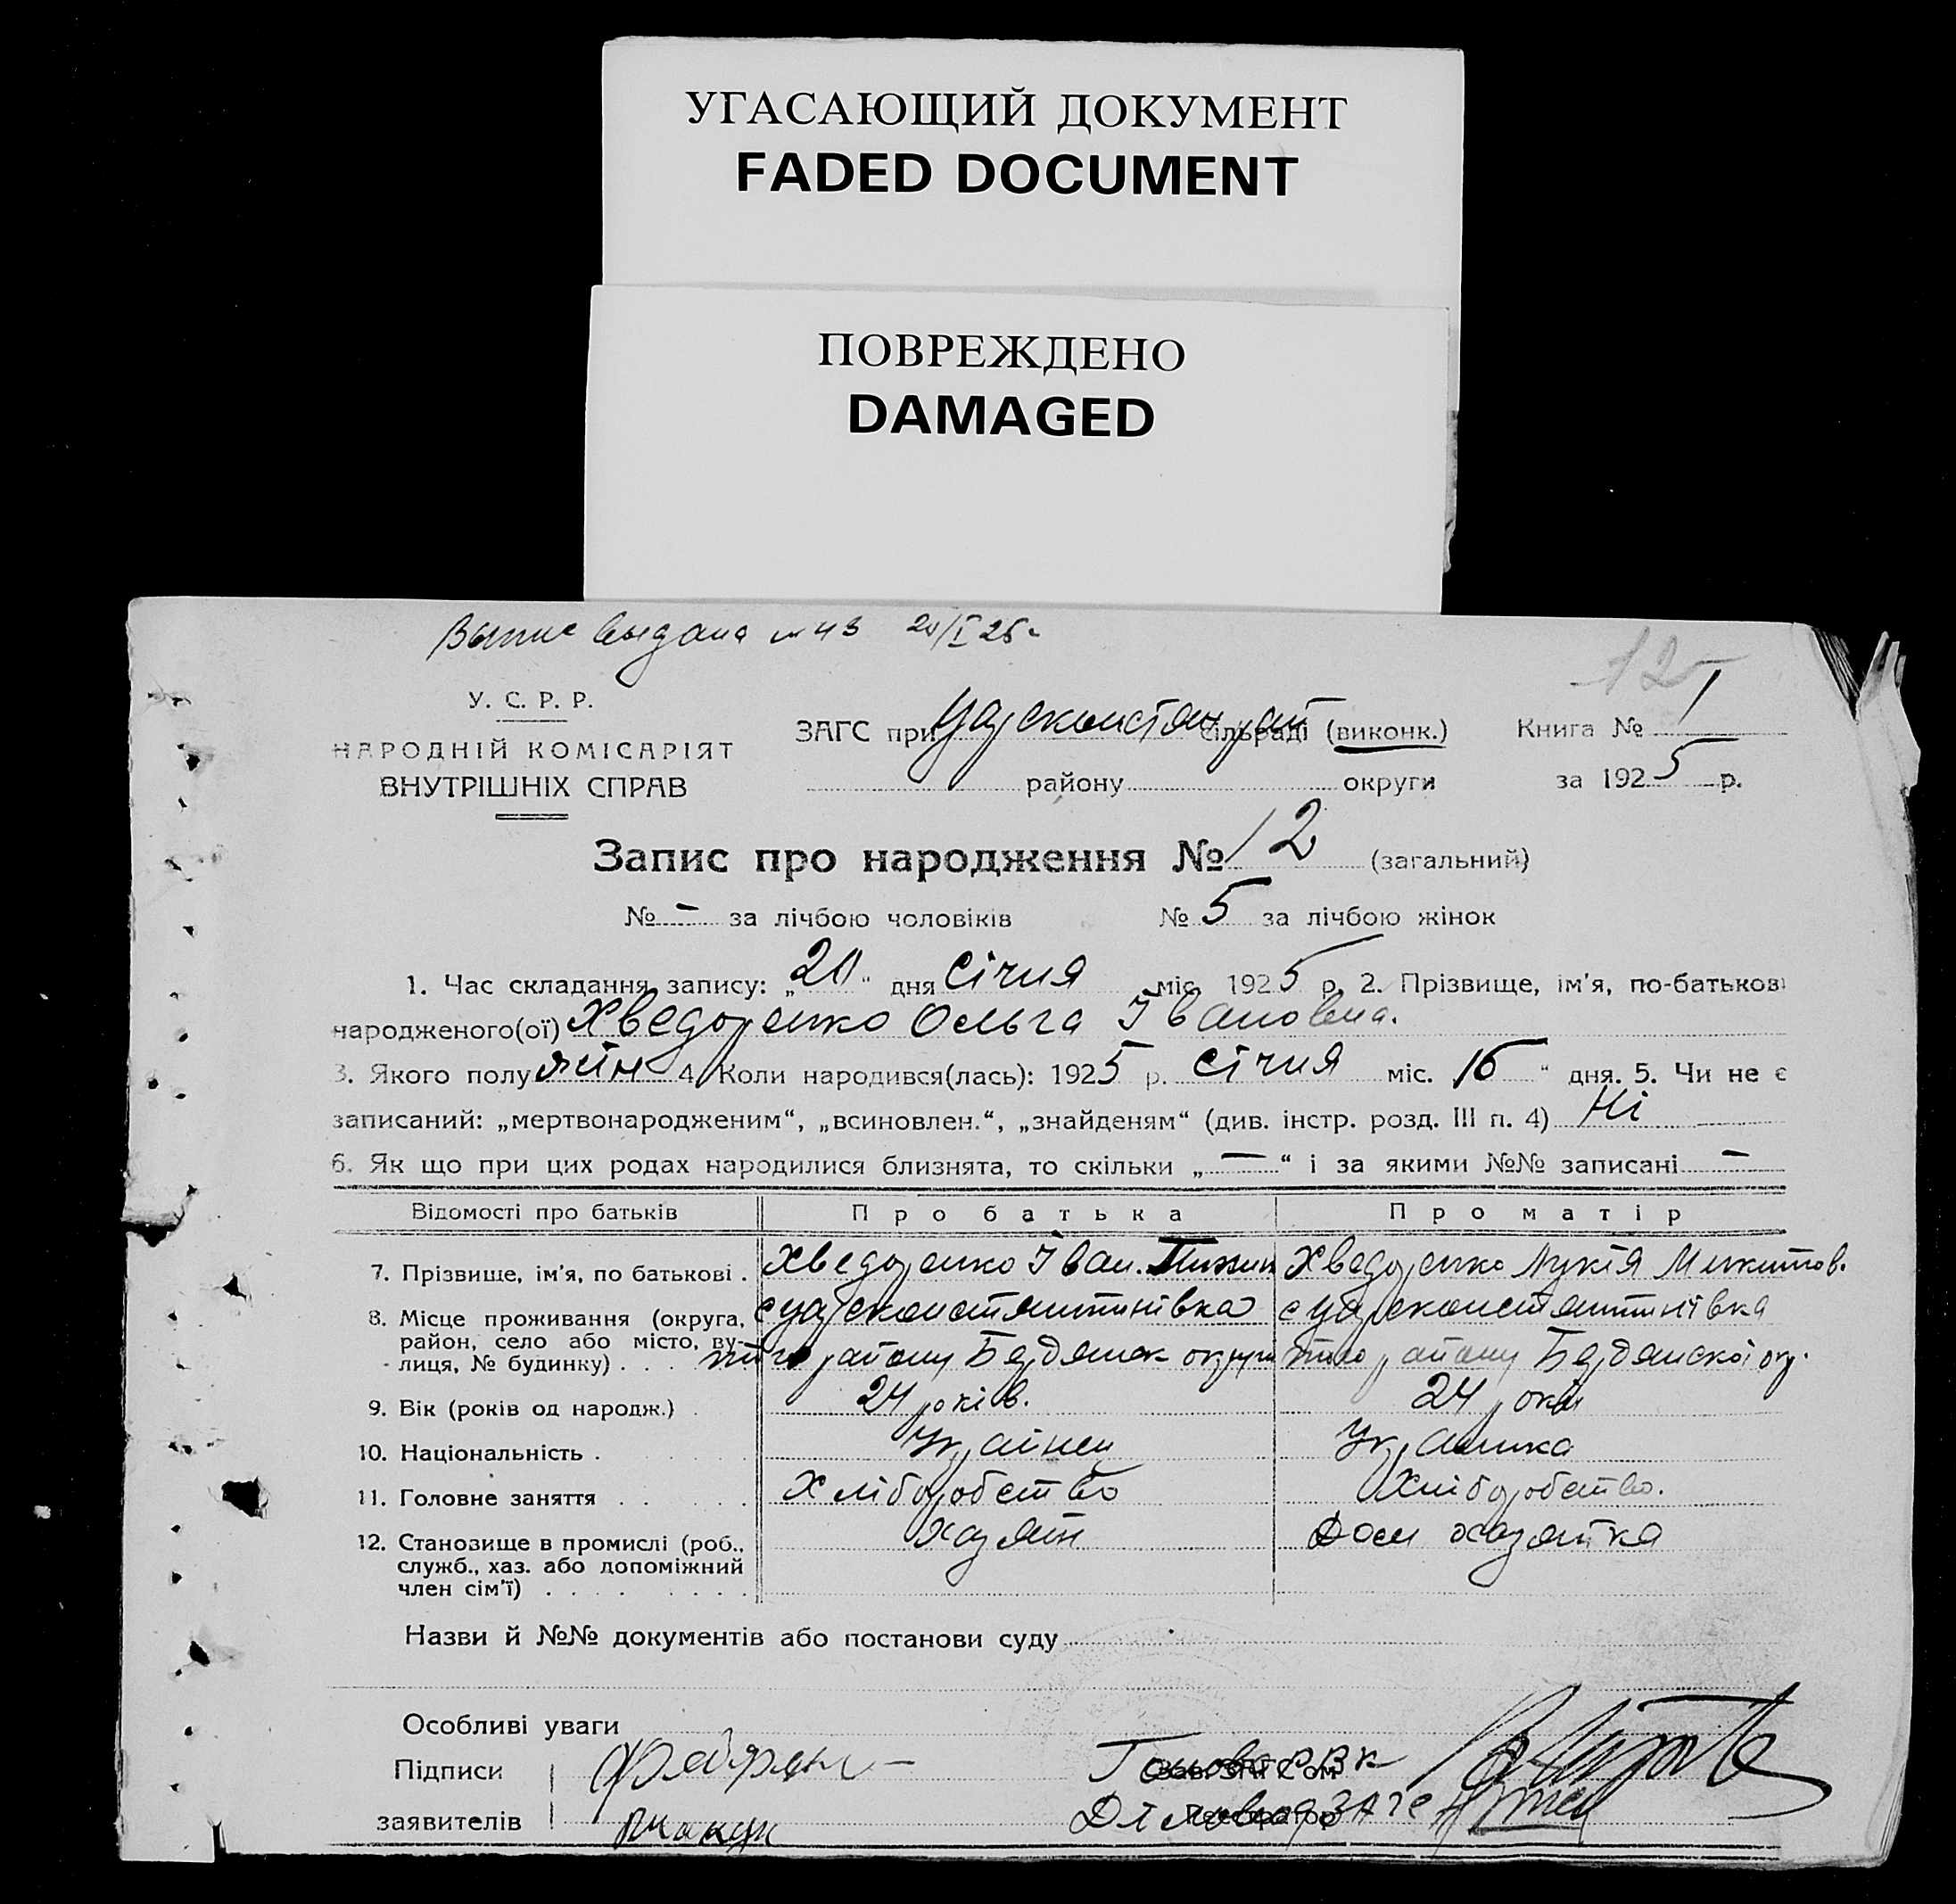 УГАСАЮЩИЙ ДОКУМЕНТ
FADED DOCUMENT
ПОВРЕЖДЕНО
DAMAGED
выдана 20/I 25 г
12
У. С. Р. Р.
НАРОДНІЙ КОМІСАРІЯТ
ВНУТРІШНІХ СПРАВ
ЗАГС при Царсконстян сільраді (виконк.) Книга № 1
району округи за 1925 р.
Запис про народження № 12 (загальний)
№ – за лічбою чоловіків № 5 за лічбою жінок
1. Час складання запису: „20“ дня Січня міс. 1925 р. 2. Прізвище, ім'я, по-батькові
народженого(ої) Хведоренко Ольга Івановна.
3. Якого полу жін 4. Коли народився(лась): 1925 р. Січня міс. 16 “ дня. 5. Чи не є
записаний: „мертвонародженим“, „всиновлен.“, „знайденям“ (див. інстр. розд. III п. 4) Ні
6. Як що при цих родах народилися близнята, то скільки „ — “ і за якими №№ записані –
Відомості про батьків Про батька Про матір
7. Прізвище, ім'я, по батькові . Хведоренко Іван. Хведоренко Лукія Микитов.
8. Місце проживання (округа, с Царсконстянтинівка с Царсконстянтинівка
район, село або місто, ву-
лиця, № будинку) . . . того району Бердянск округи того району Бердянскої окр.
9. Вік (років од народж.) . 24 років. 24 роки
10. Національність . Українец Українка
11. Головне заняття . . . Хліборобство Хліборобство.
12. Становище в промислі (роб., Хазяїн Дом хазяйка
служб., хаз. або допоміжний
член сім'ї) . . . .
Назви й №№ документів або постанови суду
Особливі уваги
Підписи Голова РВК
Зав. ЗАГС'ом
заявителів Діловод ЗАГС
Реєстратор